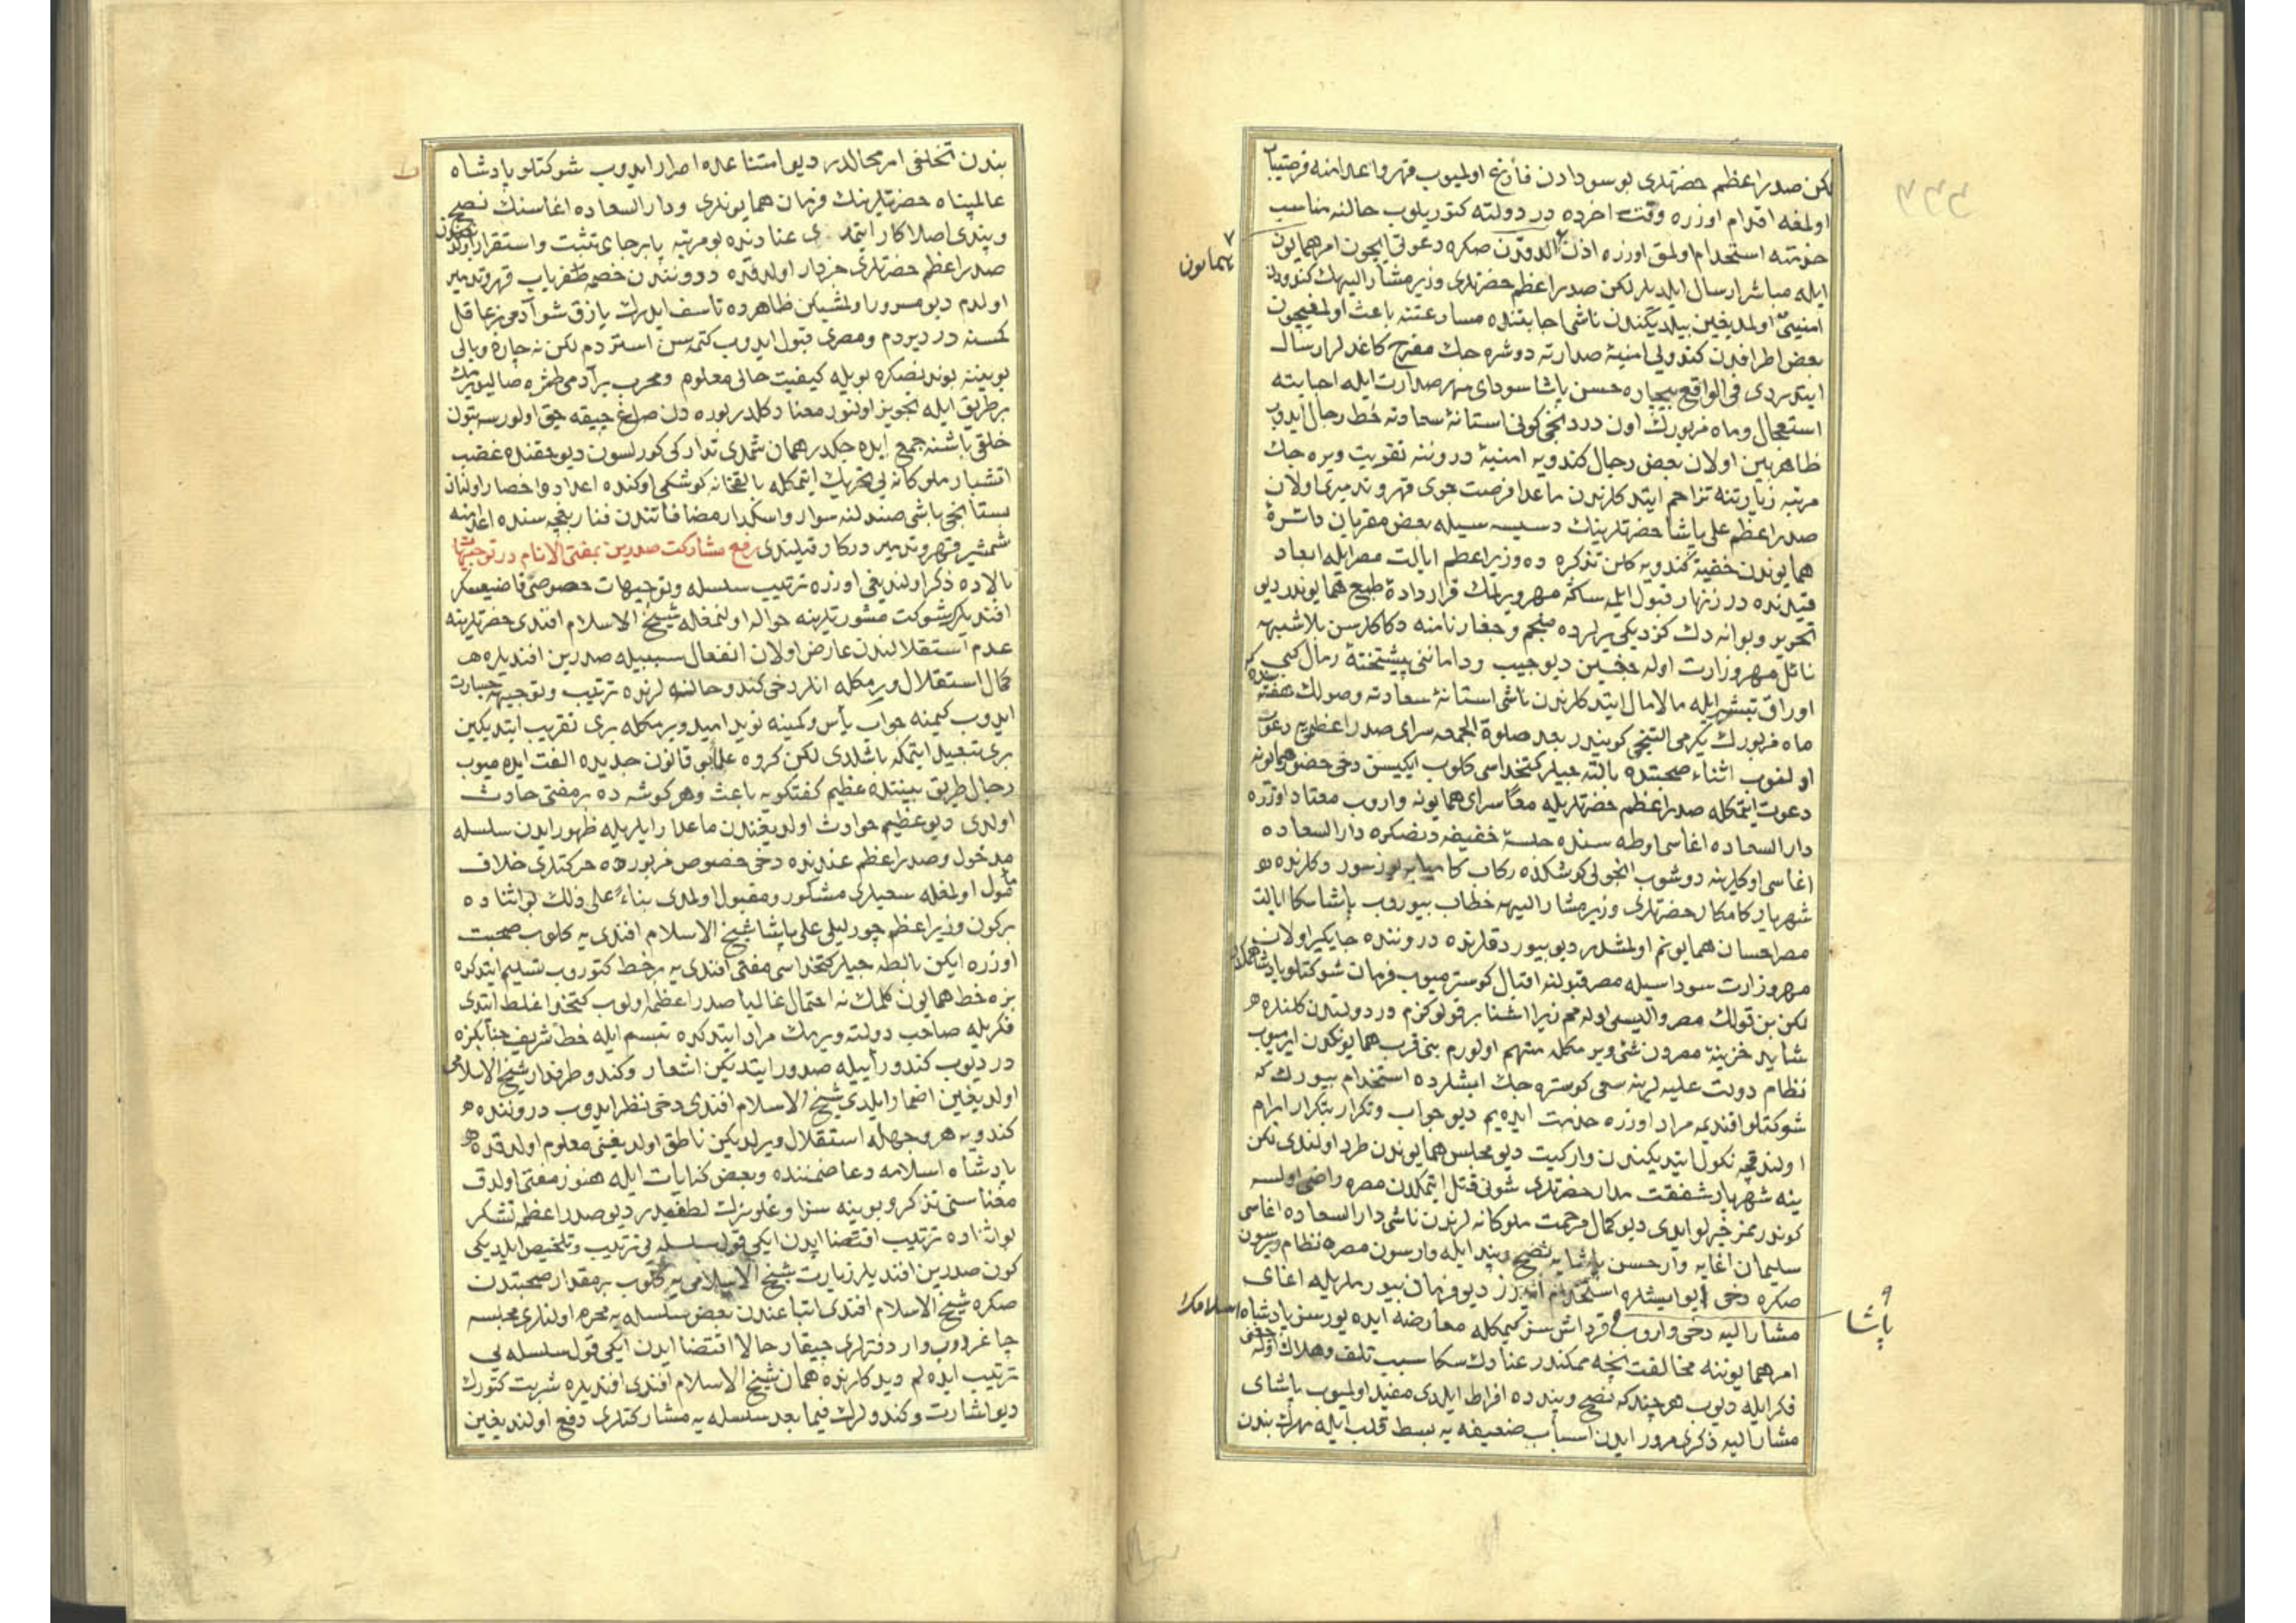 لكن صدر اعظم حضرتلرى بو سودادن فارغ اولميوب قهر و اعدامنه فرصتياب
اولمغه اقدام اوزره وقت اخرده در دولته كتوريلوب حالنه مناسب
خدمته استخدام اولمق اوزره اذن الدقدن صكره دعوتى ايچون امر همايون
همايون
ايله مباشر ارسال ايلديلر لكن صدر اعظم حضرتلرى وزير مشار اليهك كندودن
امنيتى اولمديغين بيلديكندن ناشى اجابتنده مسارعتنه باعث اولمغيچون
بعض اطرافدن كندويى امنيهٔ صدارته دوشره جك مفرح كاغدلر ارسال
ايتدردى فى الواقع بيچاره حسن پاشا سوداى مهر صدارت ايله اجابته
استعجال و ماه مزبورك اون دردنجى كونى استانهٔ سعادته حط رحال ايدوب
ظاهربين اولان بعض رجال كندويه امنيهٔ دروننه تقويت ويره جك
مرتبه زيارتنه تزاحم ايتدكلرندن ماعدا فرصت جوى قهر و تدميرى اولان
صدر اعظم على پاشا حضرتلرينك دسيسه سيله بعض مقربان دائرهٔ
همايوندن خفية كندويه كلن تذكره ده وزير اعظم ايالت مصر ايله ابعاد
قيدنده در زنهار قبول ايلمه سكا مهر ويرلمك قرار دادهٔ طبع همايوندر ديو
تحرير و بوانه دك كزديكى يرلرده منجم و جفار نامنه دكاكلرسن بلا شبهه
نائل مهر وزارت اوله جغين ديو جيب و دامانى پيشتختهٔ رمال كبى
اوراق تبشير ايله مالامال ايتدكلرندن ناشى استانهٔ سعادته وصولك هفته سنده كه
ماه مزبورك يكرمى التنجى كونيدر بعد صلوة الجمعه سراى صدر اعظمى يه دعوت
اولنوب اثناء صحبتده بالته جيلر كتخداسى كلوب ايكيسن دخى حضور همايونه
دعوت ايتمكله صدر اعظم حضرتلريله معا سراى همايونه واروب معتاد اوزره
دار السعاده اغاسى اوطه سنده جلسهٔ خفيفه دنصكره دار السعاده
اغاسى اوكلرينه دوشوب انجولى كوشكده ركاب كاميابه يوز سورد كلرنده
شهريار كامكار حضرتلرى وزير مشار اليهه خطاب بيوروب پاشا سكا ايالت
مصر احسان همايونم اولمشدر ديو بيوردقلرنده دروننده جايكير اولان
مهر وزارت سوداسيله مصر قبولنه اقبال كوسترميوب فرمان شوكتلو پادشاهمكدر
لكن بن قولك مصر واليسى اوله مم زيرا اشنا بر قولوكزم در دولتدن كلنلره
شايد خزينهٔ مصردن شئ ويرمكله متهم اولورم بنى قرب همايونكدن ايرميوب
نظام دولت عليه لرينه سعى كوستره جك ايشلرده استخدام بيورك كه
شوكتلو افنديمه مراد اوزره خدمت ايده يم ديو جواب و تكرار بتكرار ابرام
اولندقچه نكول ايتديكندن وار كيت ديو مجلس همايوندن طرد اولندى لكن
ينه شهريار شفقت مدار حضرتلرى شونى قتل ايتمكدن مصره راضى اولسه
كوندرمز خيرلو ايدى ديو كمال مرحمت ملوكانه لرندن ناشى دار السعاده اغاسى
سليمان اغايه وار حسن پاشايه نصح و پند ايله وارسون مصره نظام ويرسون
صكره دخى ايو ايشلره استخدام ايدرز ديو فرمان بيورملريله اغاى
مشار اليه دخى واروب قرداش سن كيمكله معارضه ايده يورسن پادشاه اسلامك
پاشا
امر همايوننه مخالفت نجه ممكندر عنادك سكا سبب تلف و هلاك اوله جغنى
فكر ايله ديوب هر چند كه نصح و پندده افراط ايلدى مفيد اولميوب پاشاى
مشار اليه ذكرى مرور ايدن اسباب ضعيفه يه بسط قلب ايله مهرك بندن
بندن تخلفى امر محالدر ديو امتناعده اصرار ايدوب شوكتلو پادشاه
عالمپناه حضرتلرينك فرمان همايونلرى و دار السعاده اغاسنك نصح
و پندى اصلا كار ايتمدى عنادنده بو مرتبه پابرجاى تثبت و استقرار اولدوغندن
صدر اعظم حضرتلرى خبردار اولدقده دروندن خصمه ظفرياب قهر و تدمير
اولدم ديو مسرور اولمشيكن ظاهرده تاسف ايدرك يازق شو آدمى بر عاقل
كمسنه در ديردم و مصرى قبول ايدوب كتمه سن استردم لكن نه چاره وبالى
بوينينه بوندنصكره بويله كيفيت حالى معلوم و مجرب بر آدمى طشره صاليويرمك
بر طريق ايله تجويز اولنور معنا دكلدر بوره دن صاغ چيقه جق اولورسه بتون
خلقى باشنه جمع ايده جكدر همان شمدى تداركى كورلسون ديو حقنده غضب
اتشبار ملوكانه يى تحريك ايتمكله بالقخانه كوشكى اوكنده اعداد و احضار اولنان
بستانجى باشى صندلنه سوار و اسكدار مضافاتندن فنار بغچه سنده اعدامنه
شمشير قهر و تدمير دركار قيلندى رفع مشاركت صدرين بمفتى الانام در توجيهات
بالاده ذكر اولنديغى اوزره ترتيب سلسله و توجيهات خصوصى قاضيعسكر
افنديلرك شوكت مشورتلرينه حواله اولنمغله شيخ الاسلام افندى حضرتلرينه
عدم استقلالندن عارض اولان انفعال سببيله صدرين افنديلره
كمال استقلال ويرمكله انلر دخى كندو حاللرنده ترتيب و توجيهه جسارت
ايدوب كيمينه جواب يأس و كمينه نويد اميد ويرمكله برى تقريب ايتديكين
برى تبعيد ايتمكه باشلدى لكن كروه علما بو قانون جديده الفت ايده ميوب
رجال طريق بيننده عظيم كفتكويه باعث و هر كوشه ده بر مفتى حادث
اولدى ديو عظيم حوادث اولديغندن ماعدا رايلريله ظهور ايدن سلسله
مدخول و صدر اعظم عندنده دخى خصوص مزبورده حركتلرى خلاف
مأمول اولمغله سعيلرى مشكور و مقبول اولمدى بناء على ذلك بو اثناده
بركون وزير اعظم چورليلى على پاشا شيخ الاسلام افندى يه كلوب صحبت
اوزره ايكن بالطه جيلر كتخداسى مفتى افندى يه بر خط كتوروب تسليم ايتدكده
بزه خط همايون كلمك نه احتمال غالبا صدر اعظمه اولوب كتخدا غلط ايتدى
فكريله صاحب دولته ويرمك مراد ايتدكده تبسم ايله خط شريف جنابكزه
در ديوب كندو رأييله صدور ايتديكن اشعار و كندو طرفدار شيخ الاسلامى
اولديغين اضمار ايلدى شيخ الاسلام افندى دخى نظر ايدوب دروننده
كندويه هر وجهله استقلال ويرلديكن ناطق اولديغنى معلوم اولدقده
پادشاه اسلامه دعا ضمننده و بعض كنايات ايله هنوز مفتى اولدق
معناسنى تذكر و بو ينه سزك و علو سزك لطفكزدر ديو صدر اعظمه تشكر
بو اثناده ترتيب اقتضا ايدن ايكى قول سلسله يى ترتيب و تلخيص ايلديكى
كون صدرين افنديلر زيارت شيخ الاسلامى يه كلوب بر مقدار صحبتدن
صكره شيخ الاسلام افندى اتباعندن بعض سلسله يه محرم اولنلرى مجلسه
چاغردوب وار دفترلرى چيقار حالا اقتضا ايدن ايكى قول سلسله يى
ترتيب ايده لم ديدكلرنده همان شيخ الاسلام افندى افنديلره شربت كتورك
ديو اشارت و كندولرك فيما بعد سلسله يه مشاركتلرى دفع اولنديغين